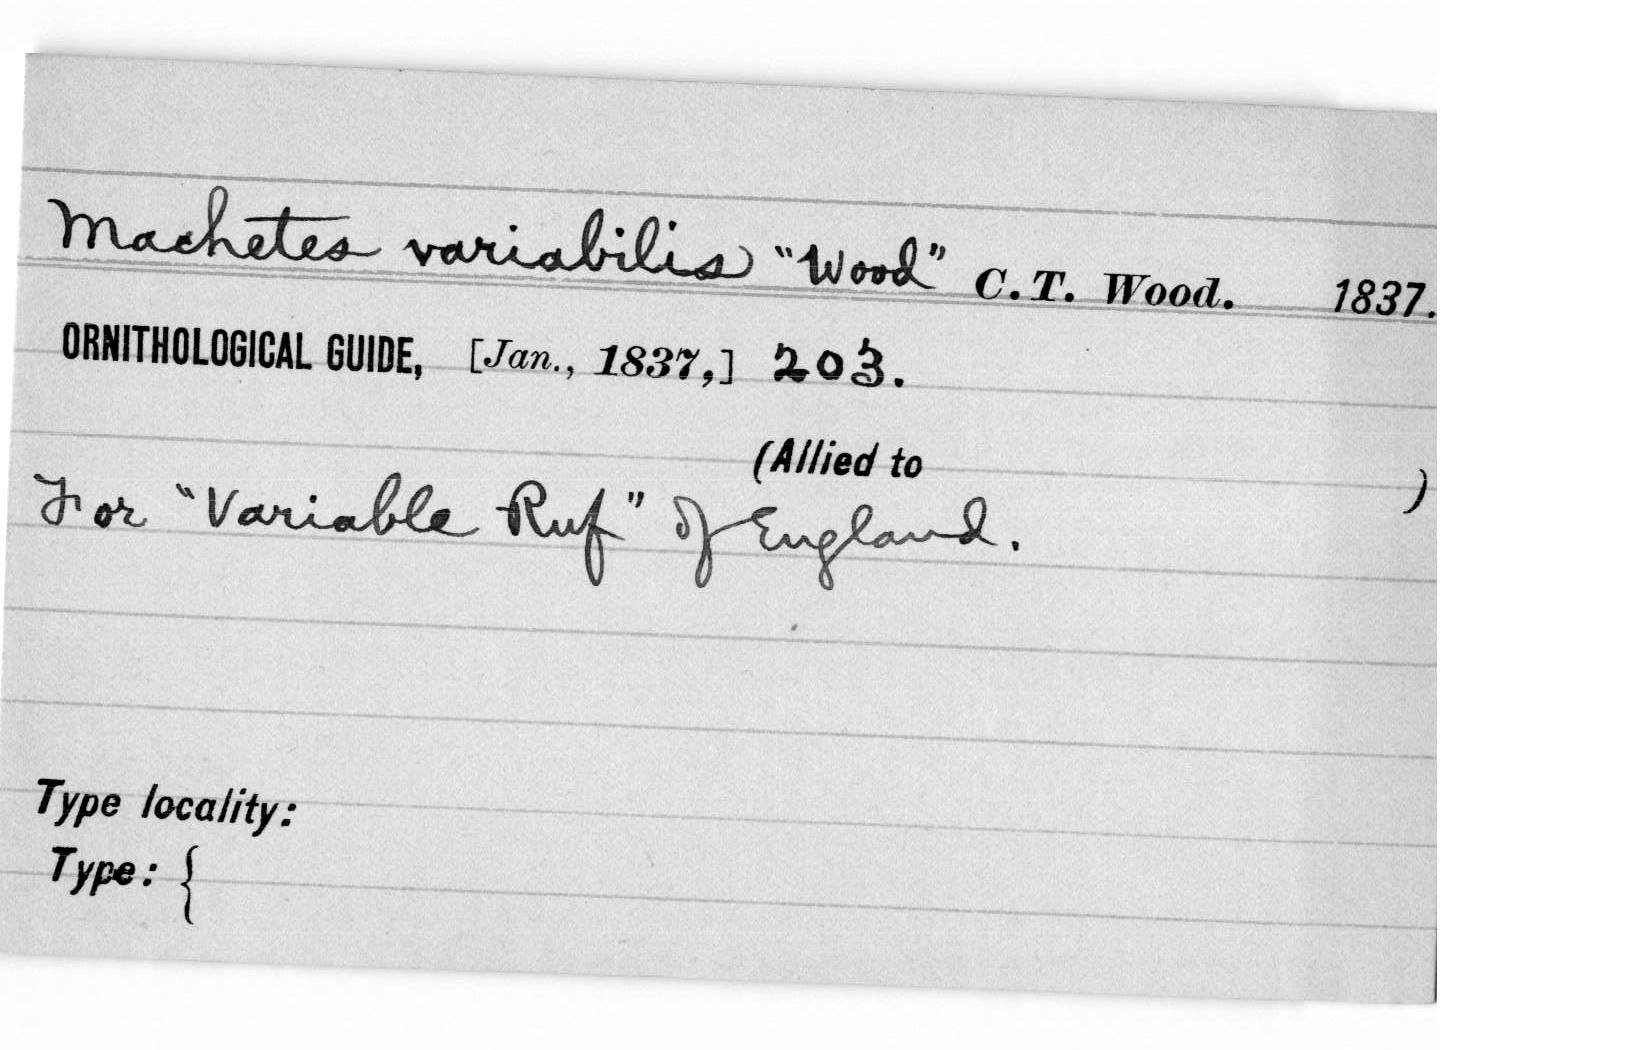 Machetes variabilis "Wood" C. T. Wood. 1837.
ORNITHOLOGICAL GUIDE, [Jan., 1837,] 203.
(Allied to )
For "Variable Ruf" of England.
Type locality:
Type: {